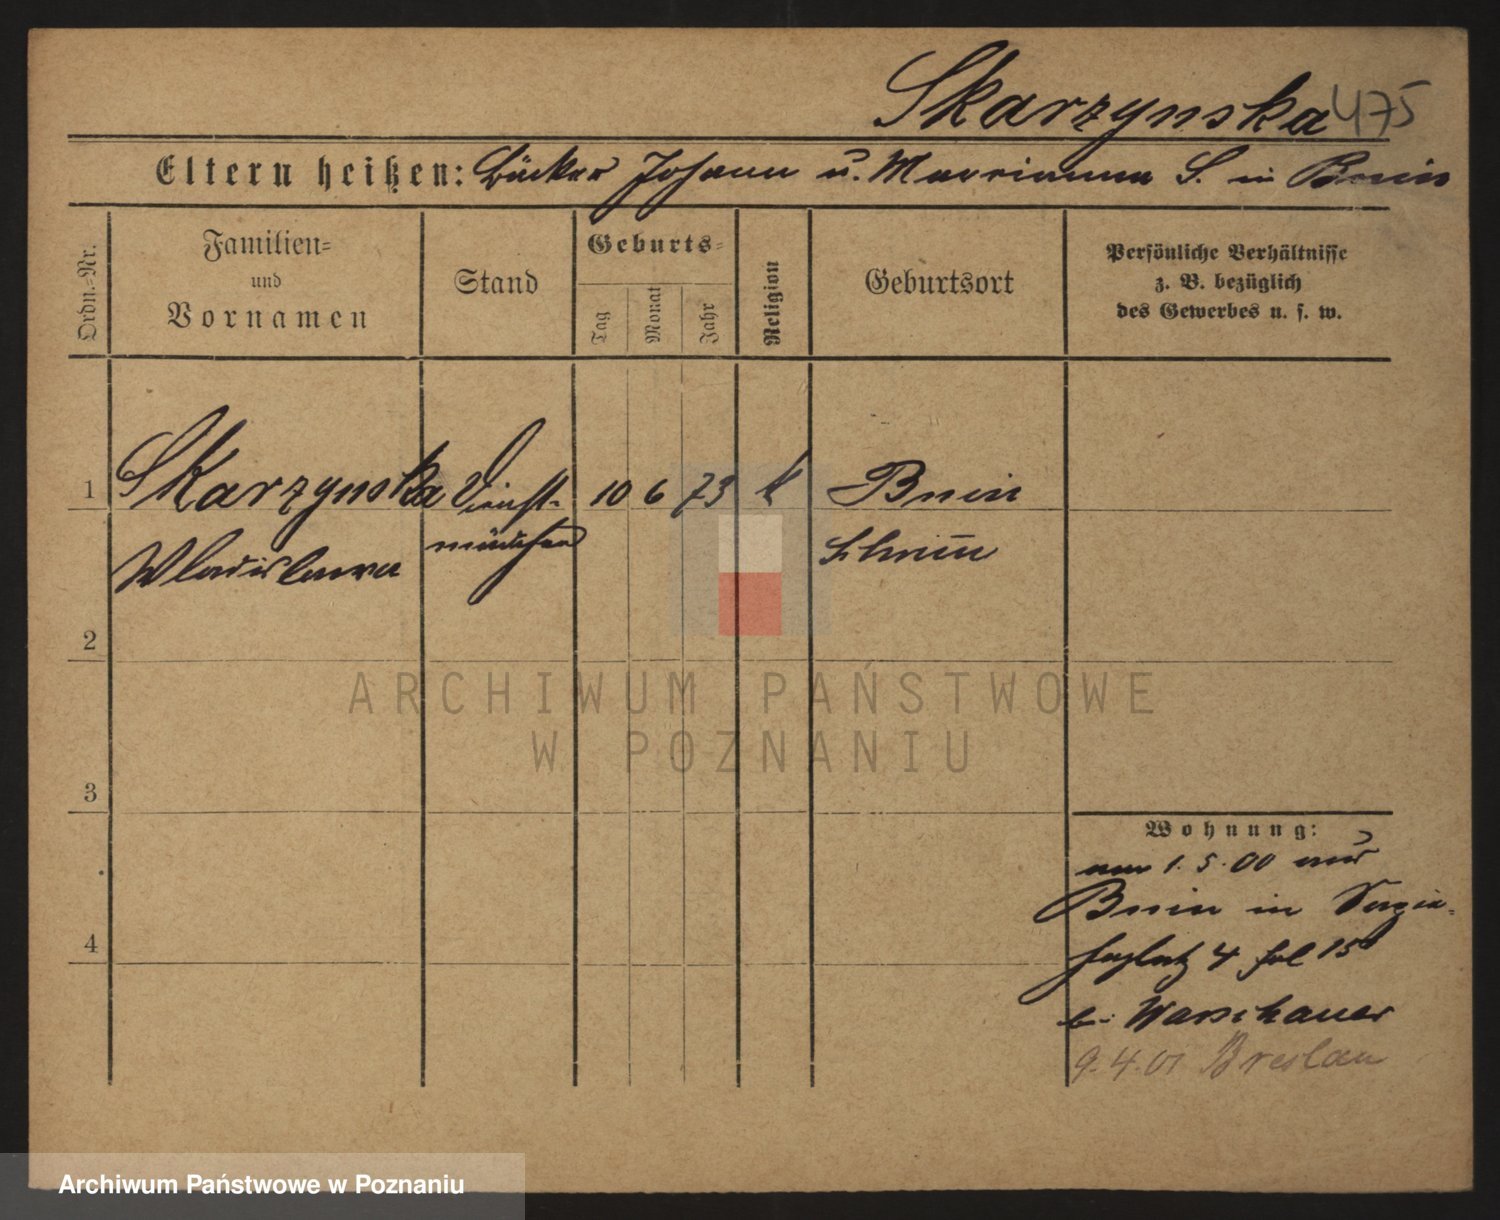 Skarzynska 475
Eltern heißen: Bäcker Johann u. Marrianna S. in Bnin
Ordn.-Nr.
Familien-
und
Vornamen
Stand
Geburts-
Tag
Monat
Jahr
Religion
Geburtsort
Persönliche Verhältnisse
z. B. bezüglich
des Gewerbes u. s. w.
1 Skarzynska Dienst- 10 6 73 k Bnin
Wladislawa mädchen Schrim
2
3
4
Wohnung:
am 1. 5. 00 aus
Bnin in
4 15
b. Warschauer
9. 4. 01 Breslau
ARCHIWUM PAŃSTWOWE
W POZNANIU
Archiwum Państwowe w Poznaniu